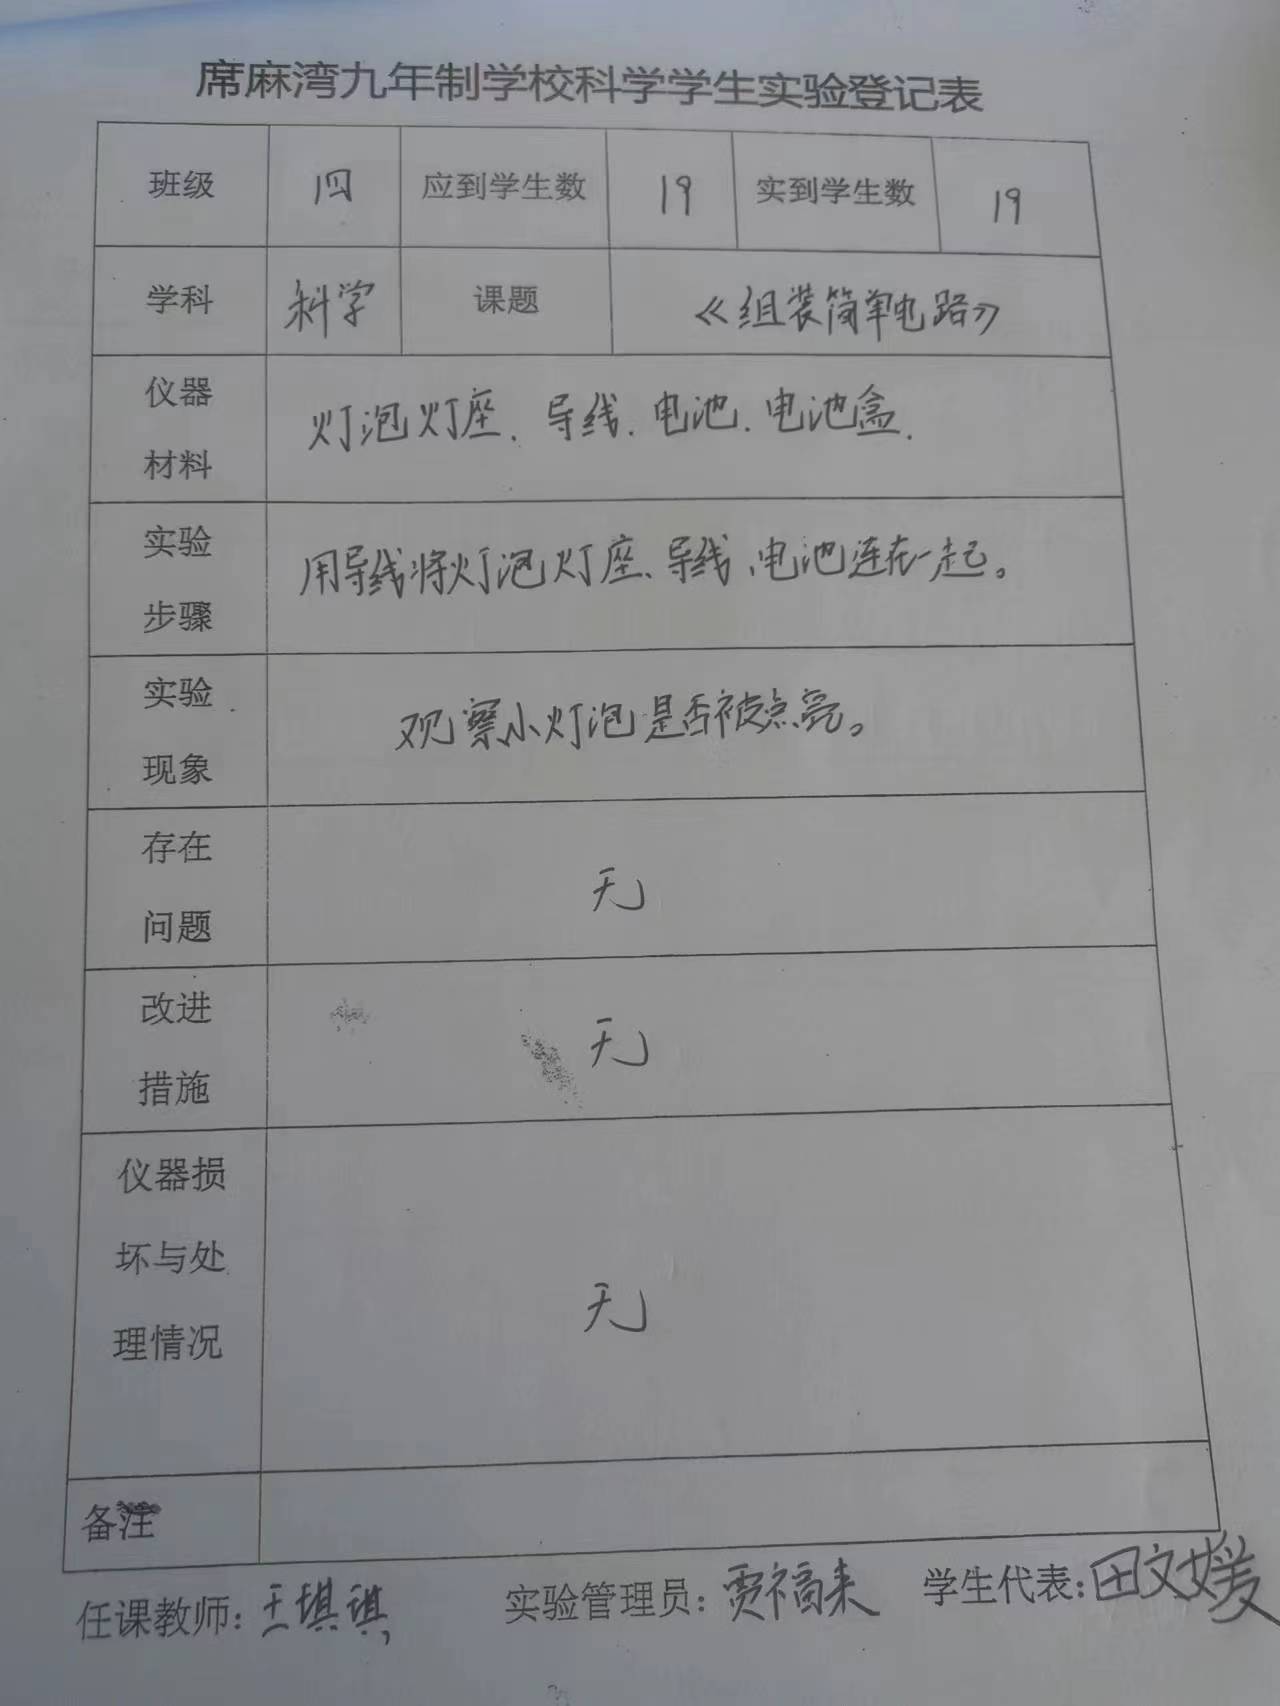 席麻湾九年制学校科学学生实验登记表
班级 四 应到学生数 19 实到学生数 19
学科 科学 课题 《组装简单电路》
仪器
材料
灯泡灯座、导线、电池、电池盒.
实验
步骤
用导线将灯泡灯座、导线、电池连在一起。
实验
现象
观察小灯泡是否被点亮。
存在
问题
无
改进
措施
无
仪器损
坏与处
理情况
无
备注
任课教师: 王琪祺 实验管理员: 贾福来 学生代表: 田文媛